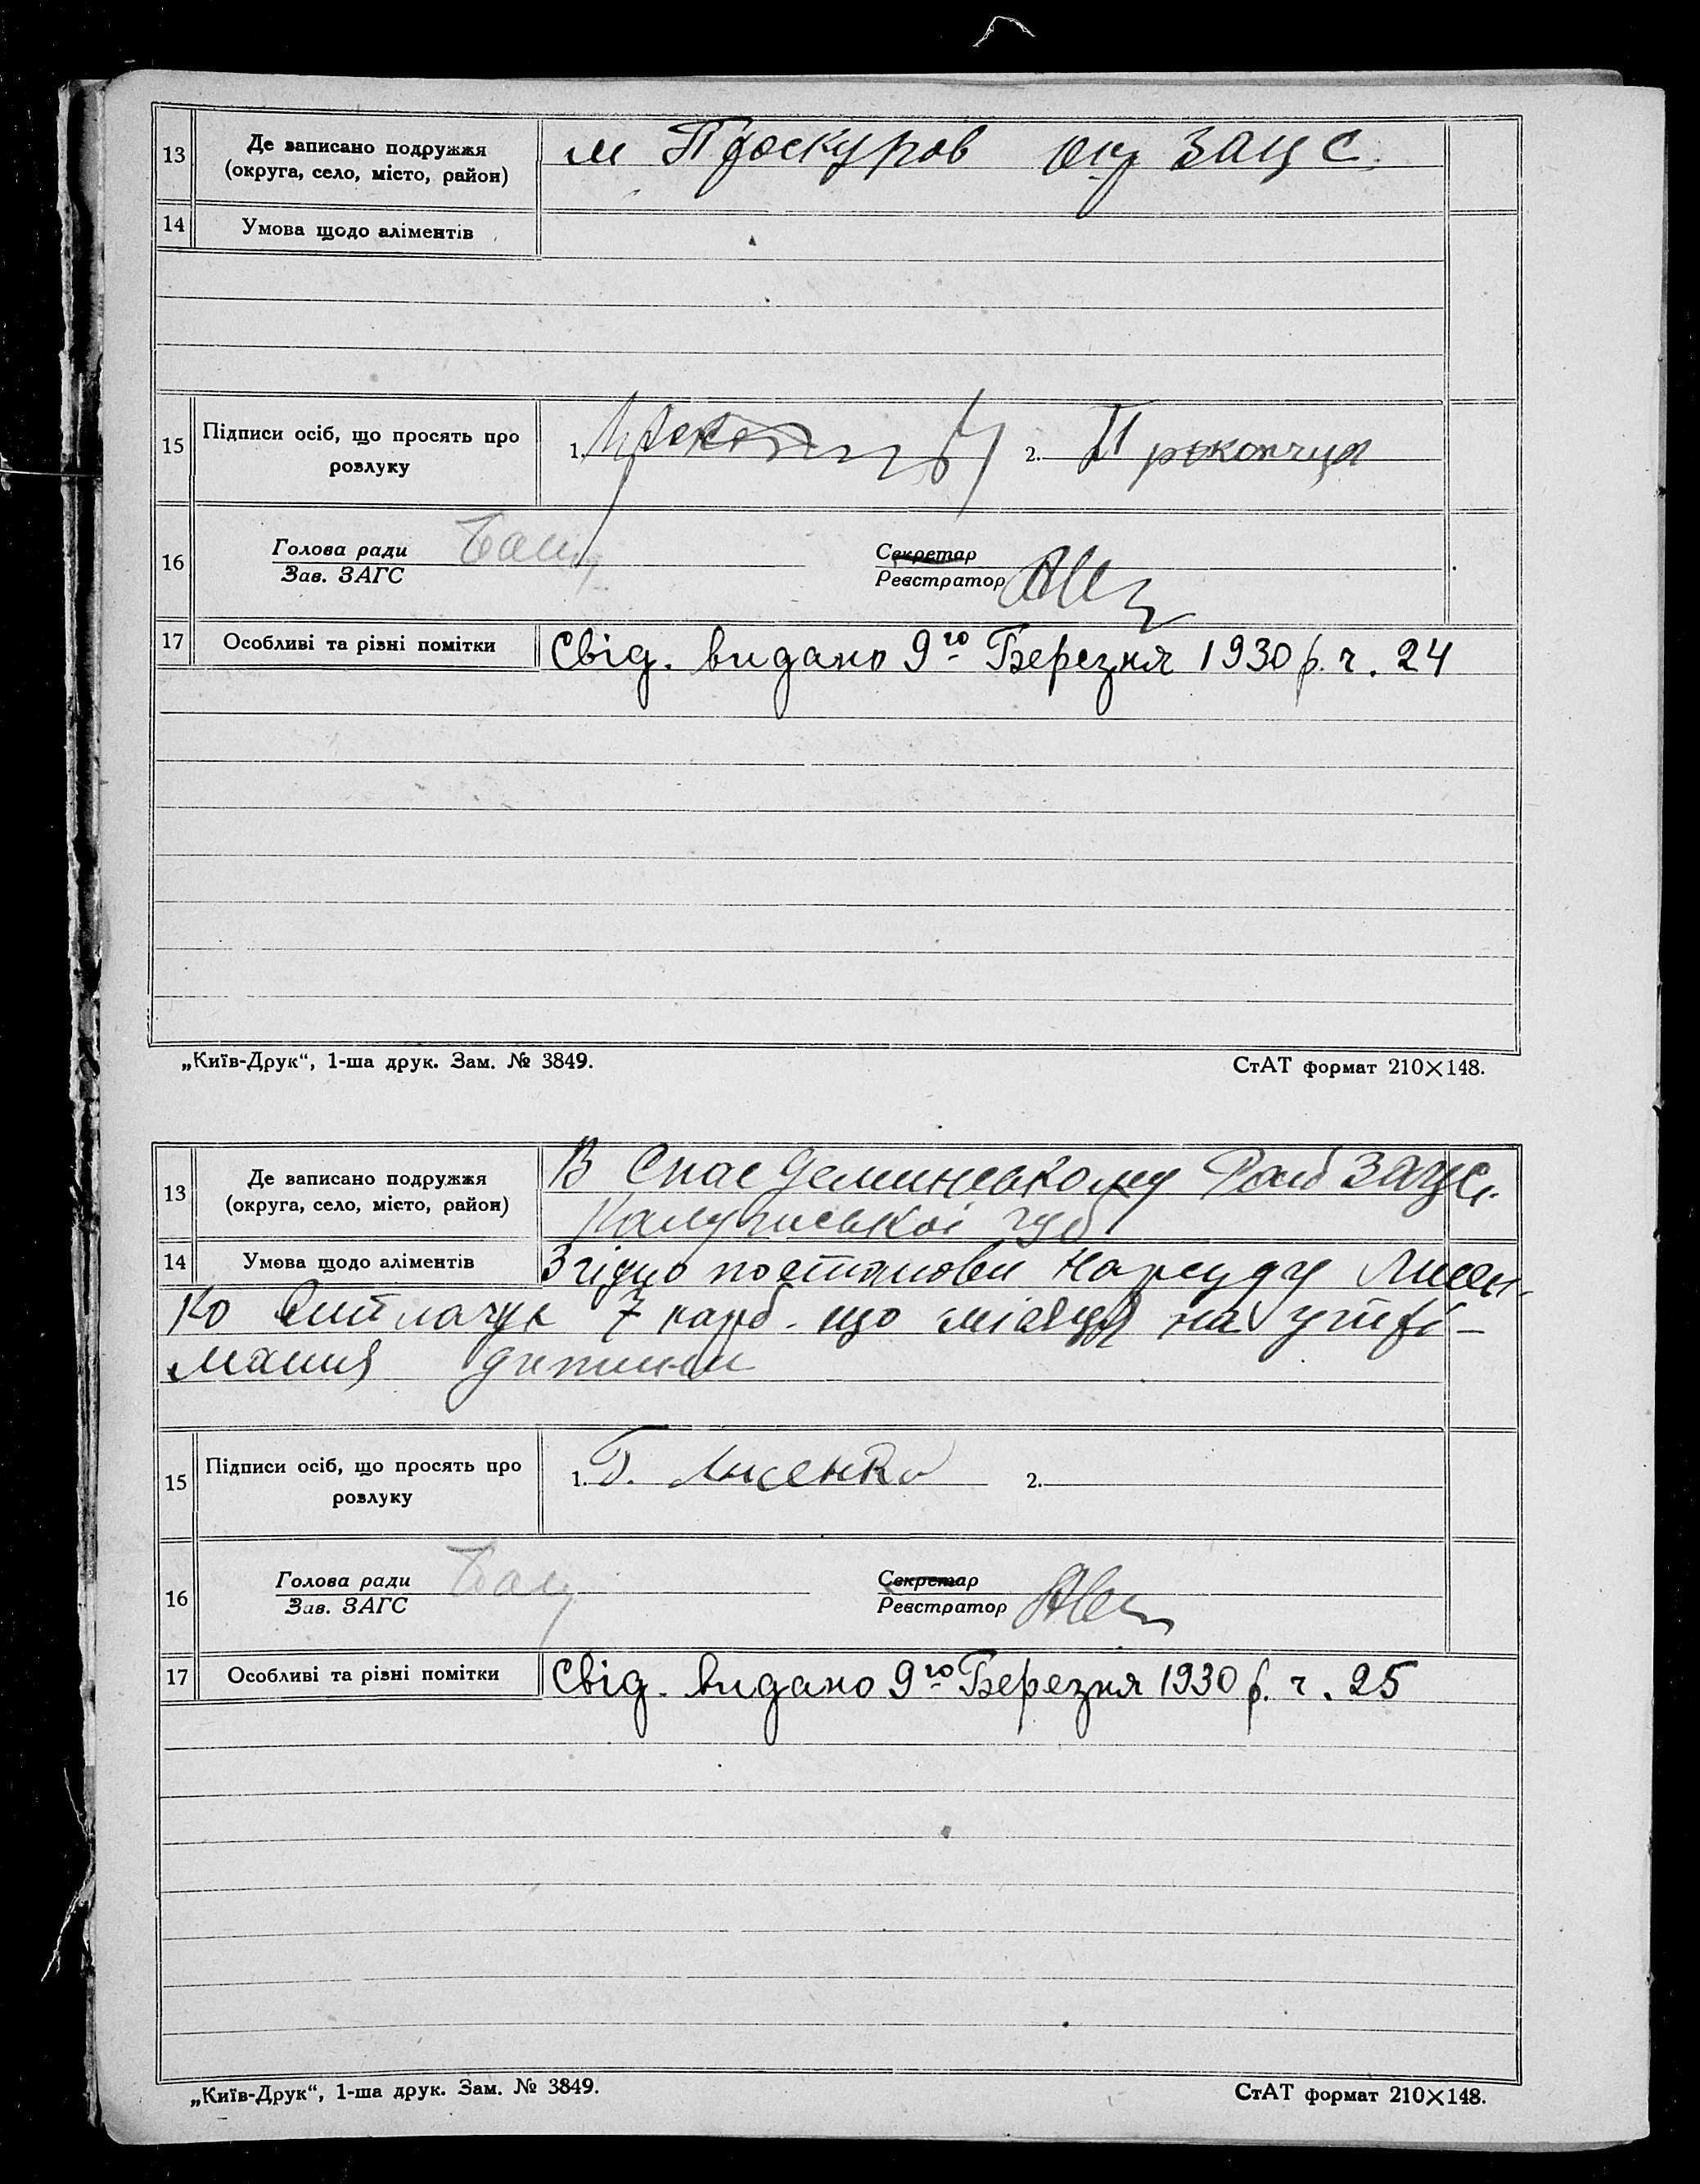 13 Де записано подружжя
(округа, село, місто, район)
м Проскуров окр ЗАЦС.
14 Умова щодо аліментів
15 Підписи осіб, що просять про
розлуку
1. 2. Прокопчук
16 Голова ради Секретар
Зав. ЗАГС Реєстратор
17 Особливі та різні помітки
Свід. видано 9го Березня 1930 р. ч. 24
„Київ-Друк“, 1-ша друк. Зам. № 3849. СтАТ формат 210×148.
13 Де записано подружжя
(округа, село, місто, район)
В Спас Деминському Рай ЗАЦС.
Калужської губ
14 Умова щодо аліментів
Згідно постанови Нарсуду Лисен-
ко виплачує 7 карб. що місяця на утрі-
мання дитини
15 Підписи осіб, що просять про
розлуку
1. Г. Лисенко 2.
16 Голова ради Секретар
Зав. ЗАГС Реєстратор
17 Особливі та різні помітки
Свід. видано 9го Березня 1930 р. ч. 25
„Київ-Друк“, 1-ша друк. Зам. № 3849. СтАТ формат 210×148.